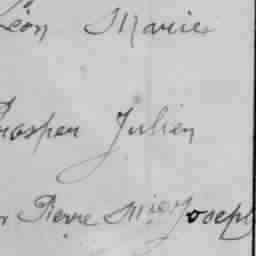 Léon Maries
Julien
Pierre Mie Joseph